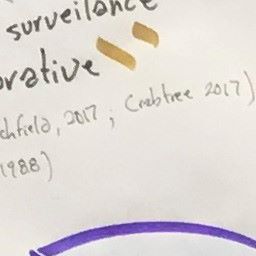 surveilance
orative
chfield, 2017 ; Crabtree 2017)
1988)